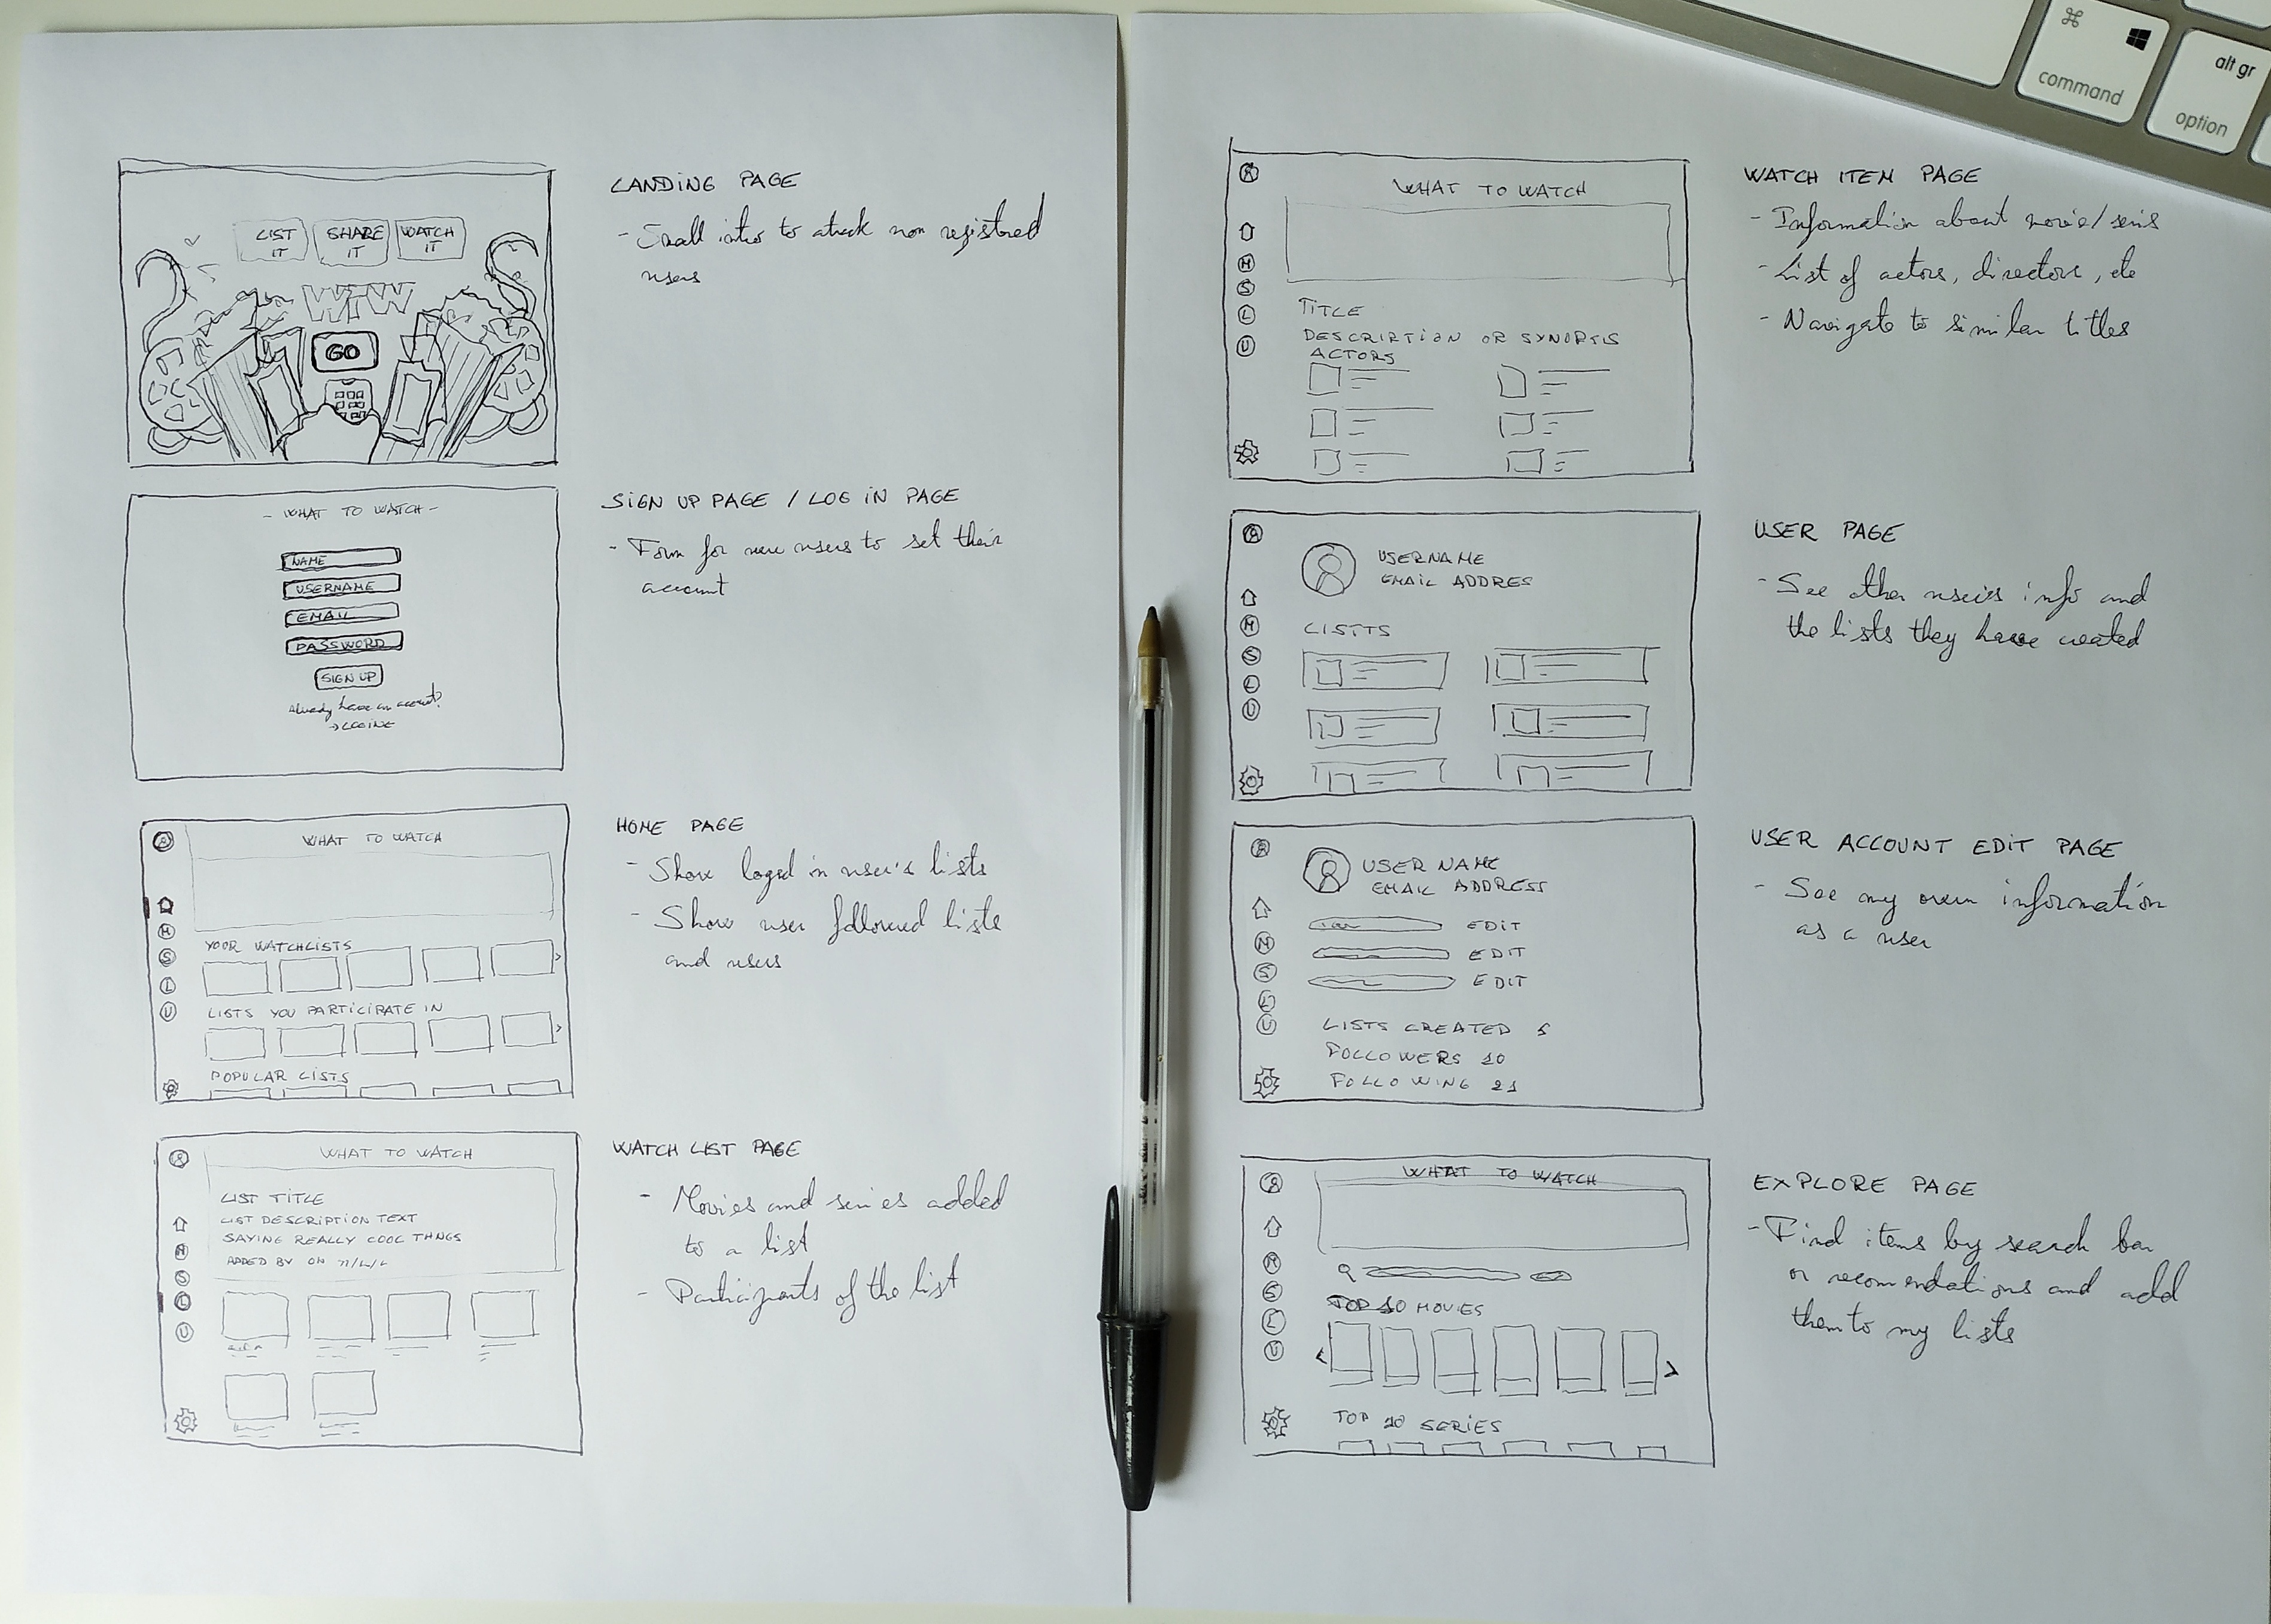 LIST IT
SHARE IT
WATCH IT
WTW
GO
LANDING PAGE
- Small intro to atrack non registred
users
- WHAT TO WATCH -
NAME
USERNAME
EMAIL
PASSWORD
SIGN UP
Already have an account?
SIGN UP PAGE / LOG IN PAGE
- Form for new users to set their
account
WHAT TO WATCH
YOUR WATCHLISTS
LISTS YOU PARTICIPATE IN
POPULAR LISTS
M
S
L
U
HOME PAGE
- Show loged in user's lists
- Show user followed lists
and users
WHAT TO WATCH
LIST TITLE
LIST DESCRIPTION TEXT
SAYING REALLY COOL THNGS
ADDED BY ON
M
S
L
U
WATCH LIST PAGE
- Movies and series added
to a list
- Participants of the list
WHAT TO WATCH
M
S
L
U
TITLE
DESCRIPTION OR SYNOPSIS
ACTORS
WATCH ITEM PAGE
- Information about movie/series
- List of actors, directors, etc
- Navigate to similar titles
USERNAME
EMAIL ADDRES
LISTTS
M
S
L
U
USER PAGE
- See other users info and
the lists they have created
USER NAME
EMAIL ADDRESS
EDIT
EDIT
EDIT
M
S
L
U
LISTS CREATED 5
FOLLOWERS 10
FOLLOWING 21
USER ACCOUNT EDIT PAGE
- See my own information
as a user
WHAT TO WATCH
M
S
L
U
TOP 10 MOVIES
TOP 10 SERIES
EXPLORE PAGE
- Find items by search bar
or recomendations and add
them to my lists
⌘
command
alt gr
option